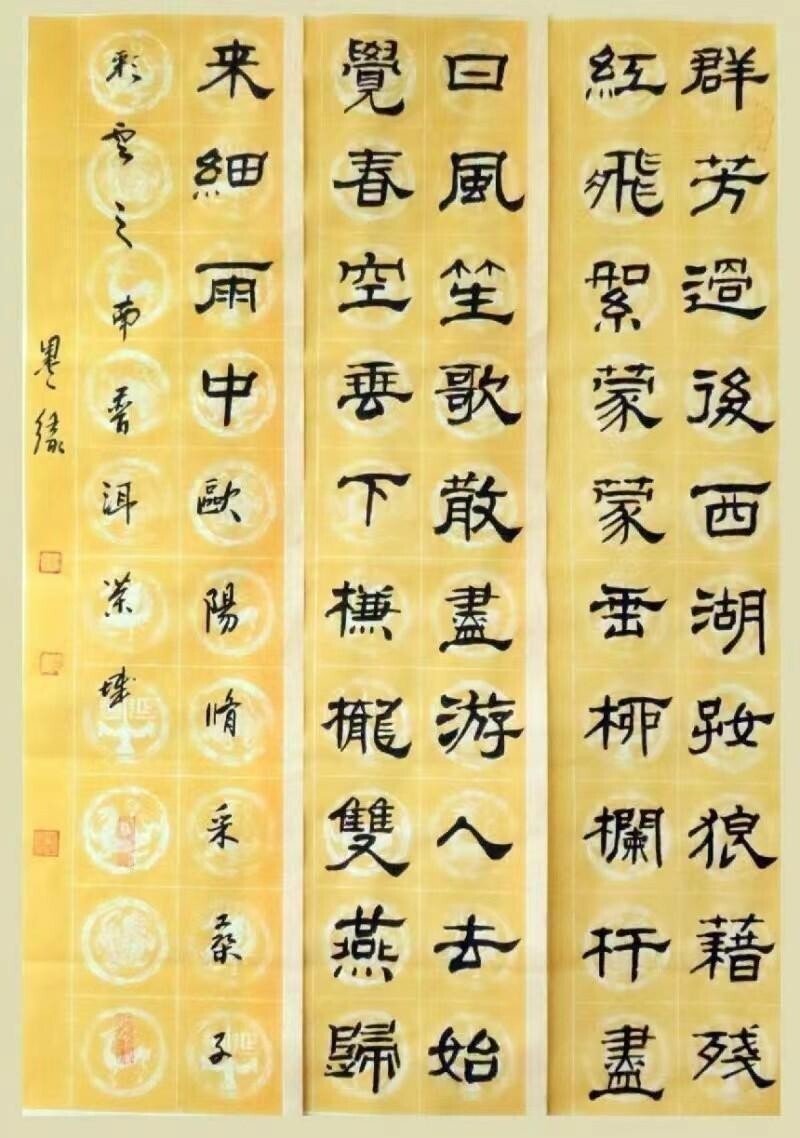 群芳過後西湖好狼藉残
紅飛絮蒙蒙垂柳欄杆盡
日風笙歌散盡游人去始
覺春空垂下槏櫳雙燕歸
来細雨中歐陽脩采桑子
彩雲之南普洱茶城